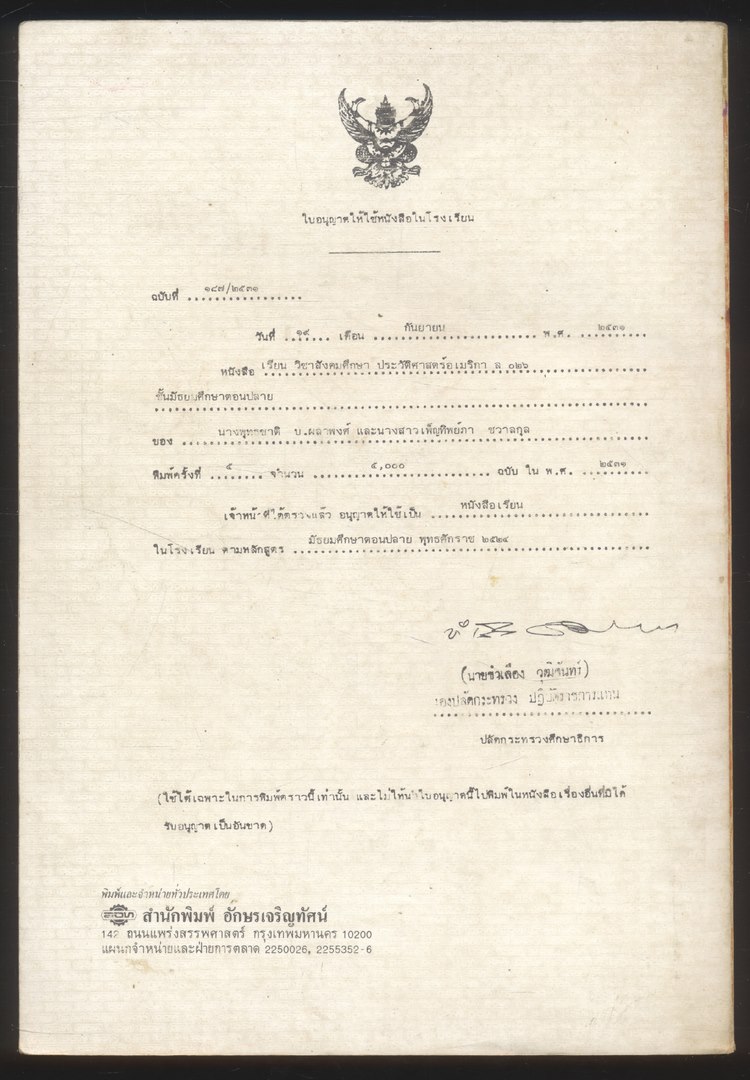 ใบอนุญาตให้ใช้หนังสือในโรงเรียน
ฉบับที่ ๑๘๗/๒๕๓๑
วันที่ ๑๙ เดือน กันยายน พ.ศ. ๒๕๓๑
หนังสือ เรียน วิชาสังคมศึกษา ประวัติศาสตร์อเมริกา ส ๐๒๖
ชั้นมัธยมศึกษาตอนปลาย
ของ นางพุทธชาติ บ.ผลาพงศ์ และนางสาวเพ็ญทิพย์ภา ชวาลกุล
พิมพ์ครั้งที่ ๕ จำนวน ๕,๐๐๐ ฉบับ ใน พ.ศ. ๒๕๓๑
เจ้าหน้าที่ได้ตรวจแล้ว อนุญาตให้ใช้เป็น หนังสือเรียน
ในโรงเรียน ตามหลักสูตร มัธยมศึกษาตอนปลาย พุทธศักราช ๒๕๒๔
(นายขำเลือง วุฒิจันทร์)
รองปลัดกระทรวง ปฏิบัติราชการแทน
ปลัดกระทรวงศึกษาธิการ
(ใช้ได้เฉพาะในการพิมพ์คราวนี้เท่านั้น และไม่ให้นำใบอนุญาตนี้ไปพิมพ์ในหนังสือเรื่องอื่นที่มิได้
รับอนุญาตเป็นอันขาด)
พิมพ์และจำหน่ายทั่วประเทศโดย
สำนักพิมพ์ อักษรเจริญทัศน์
142 ถนนแพร่งสรรพศาสตร์ กรุงเทพมหานคร 10200
แผนกจำหน่ายและฝ่ายการตลาด 2250026, 2255352-6